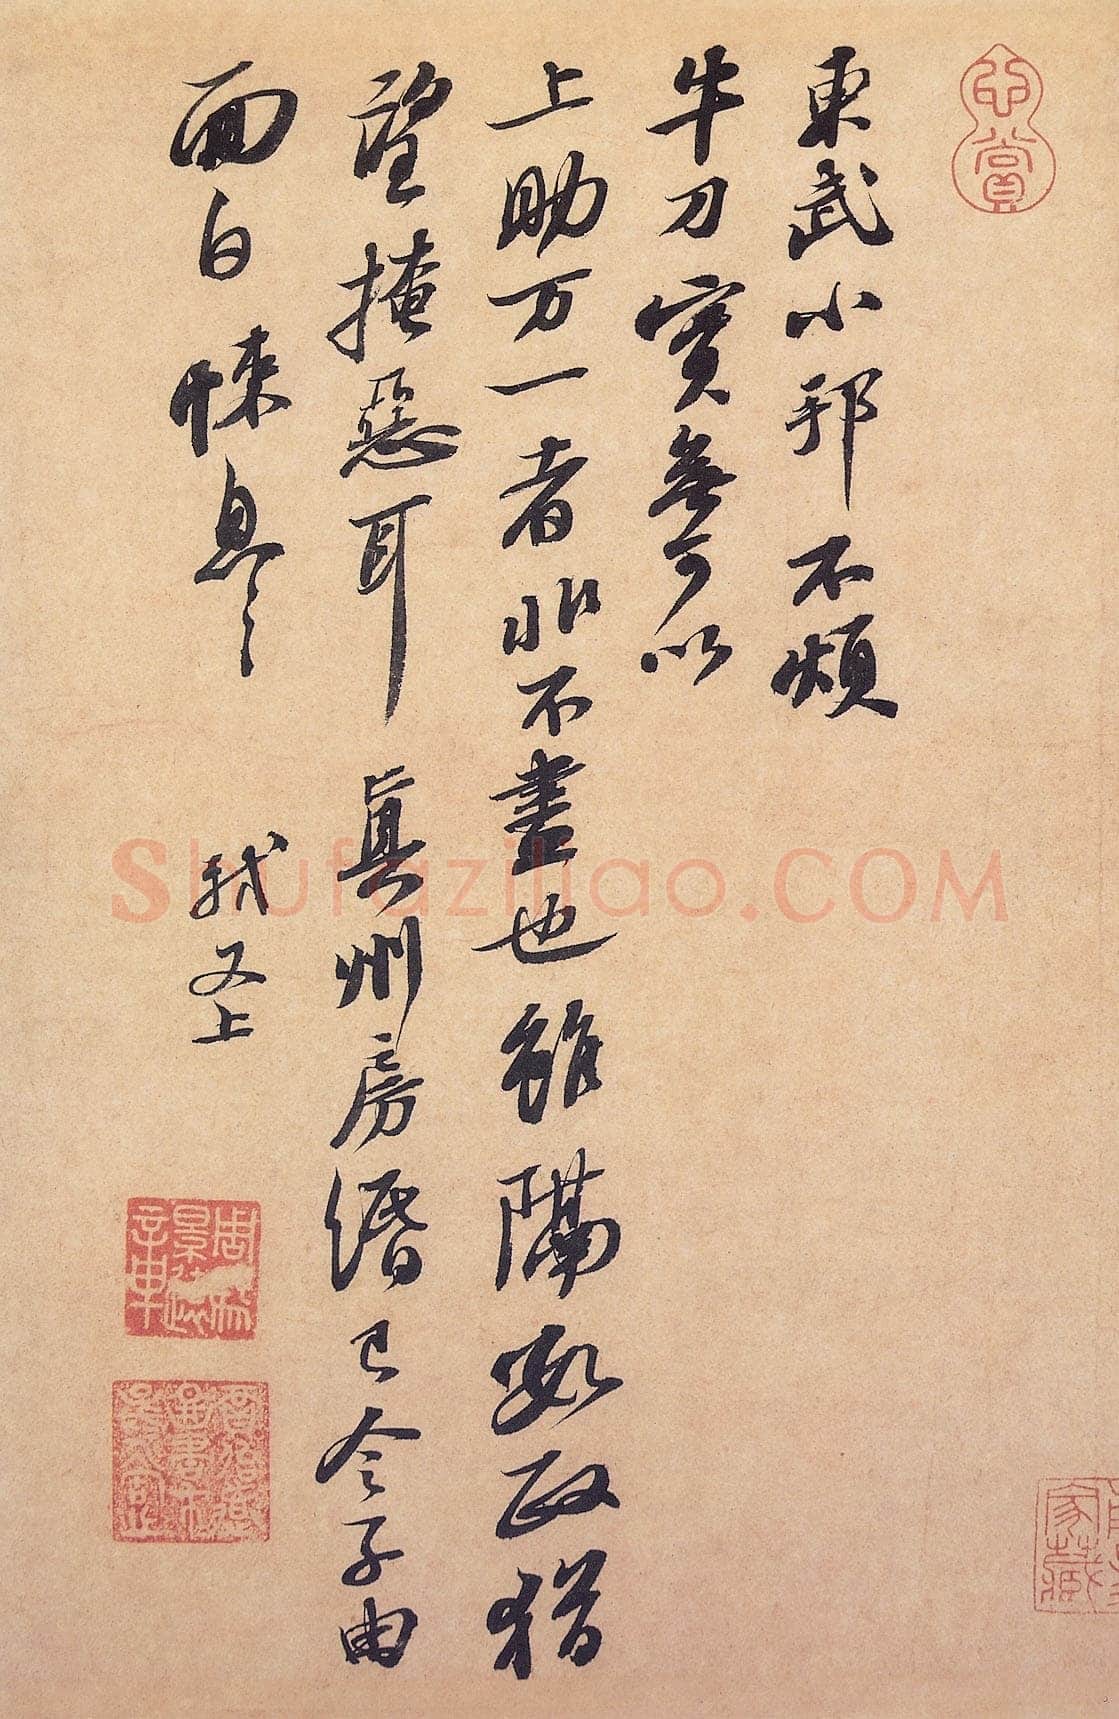 心賞
東武小邦不煩
牛刀實無可以
上助万一者非不盡也雖隔數政猶
望掩惡耳真州房緡已令子由
面白悚息〻
軾又上
家藏
Shufaziliao.COM